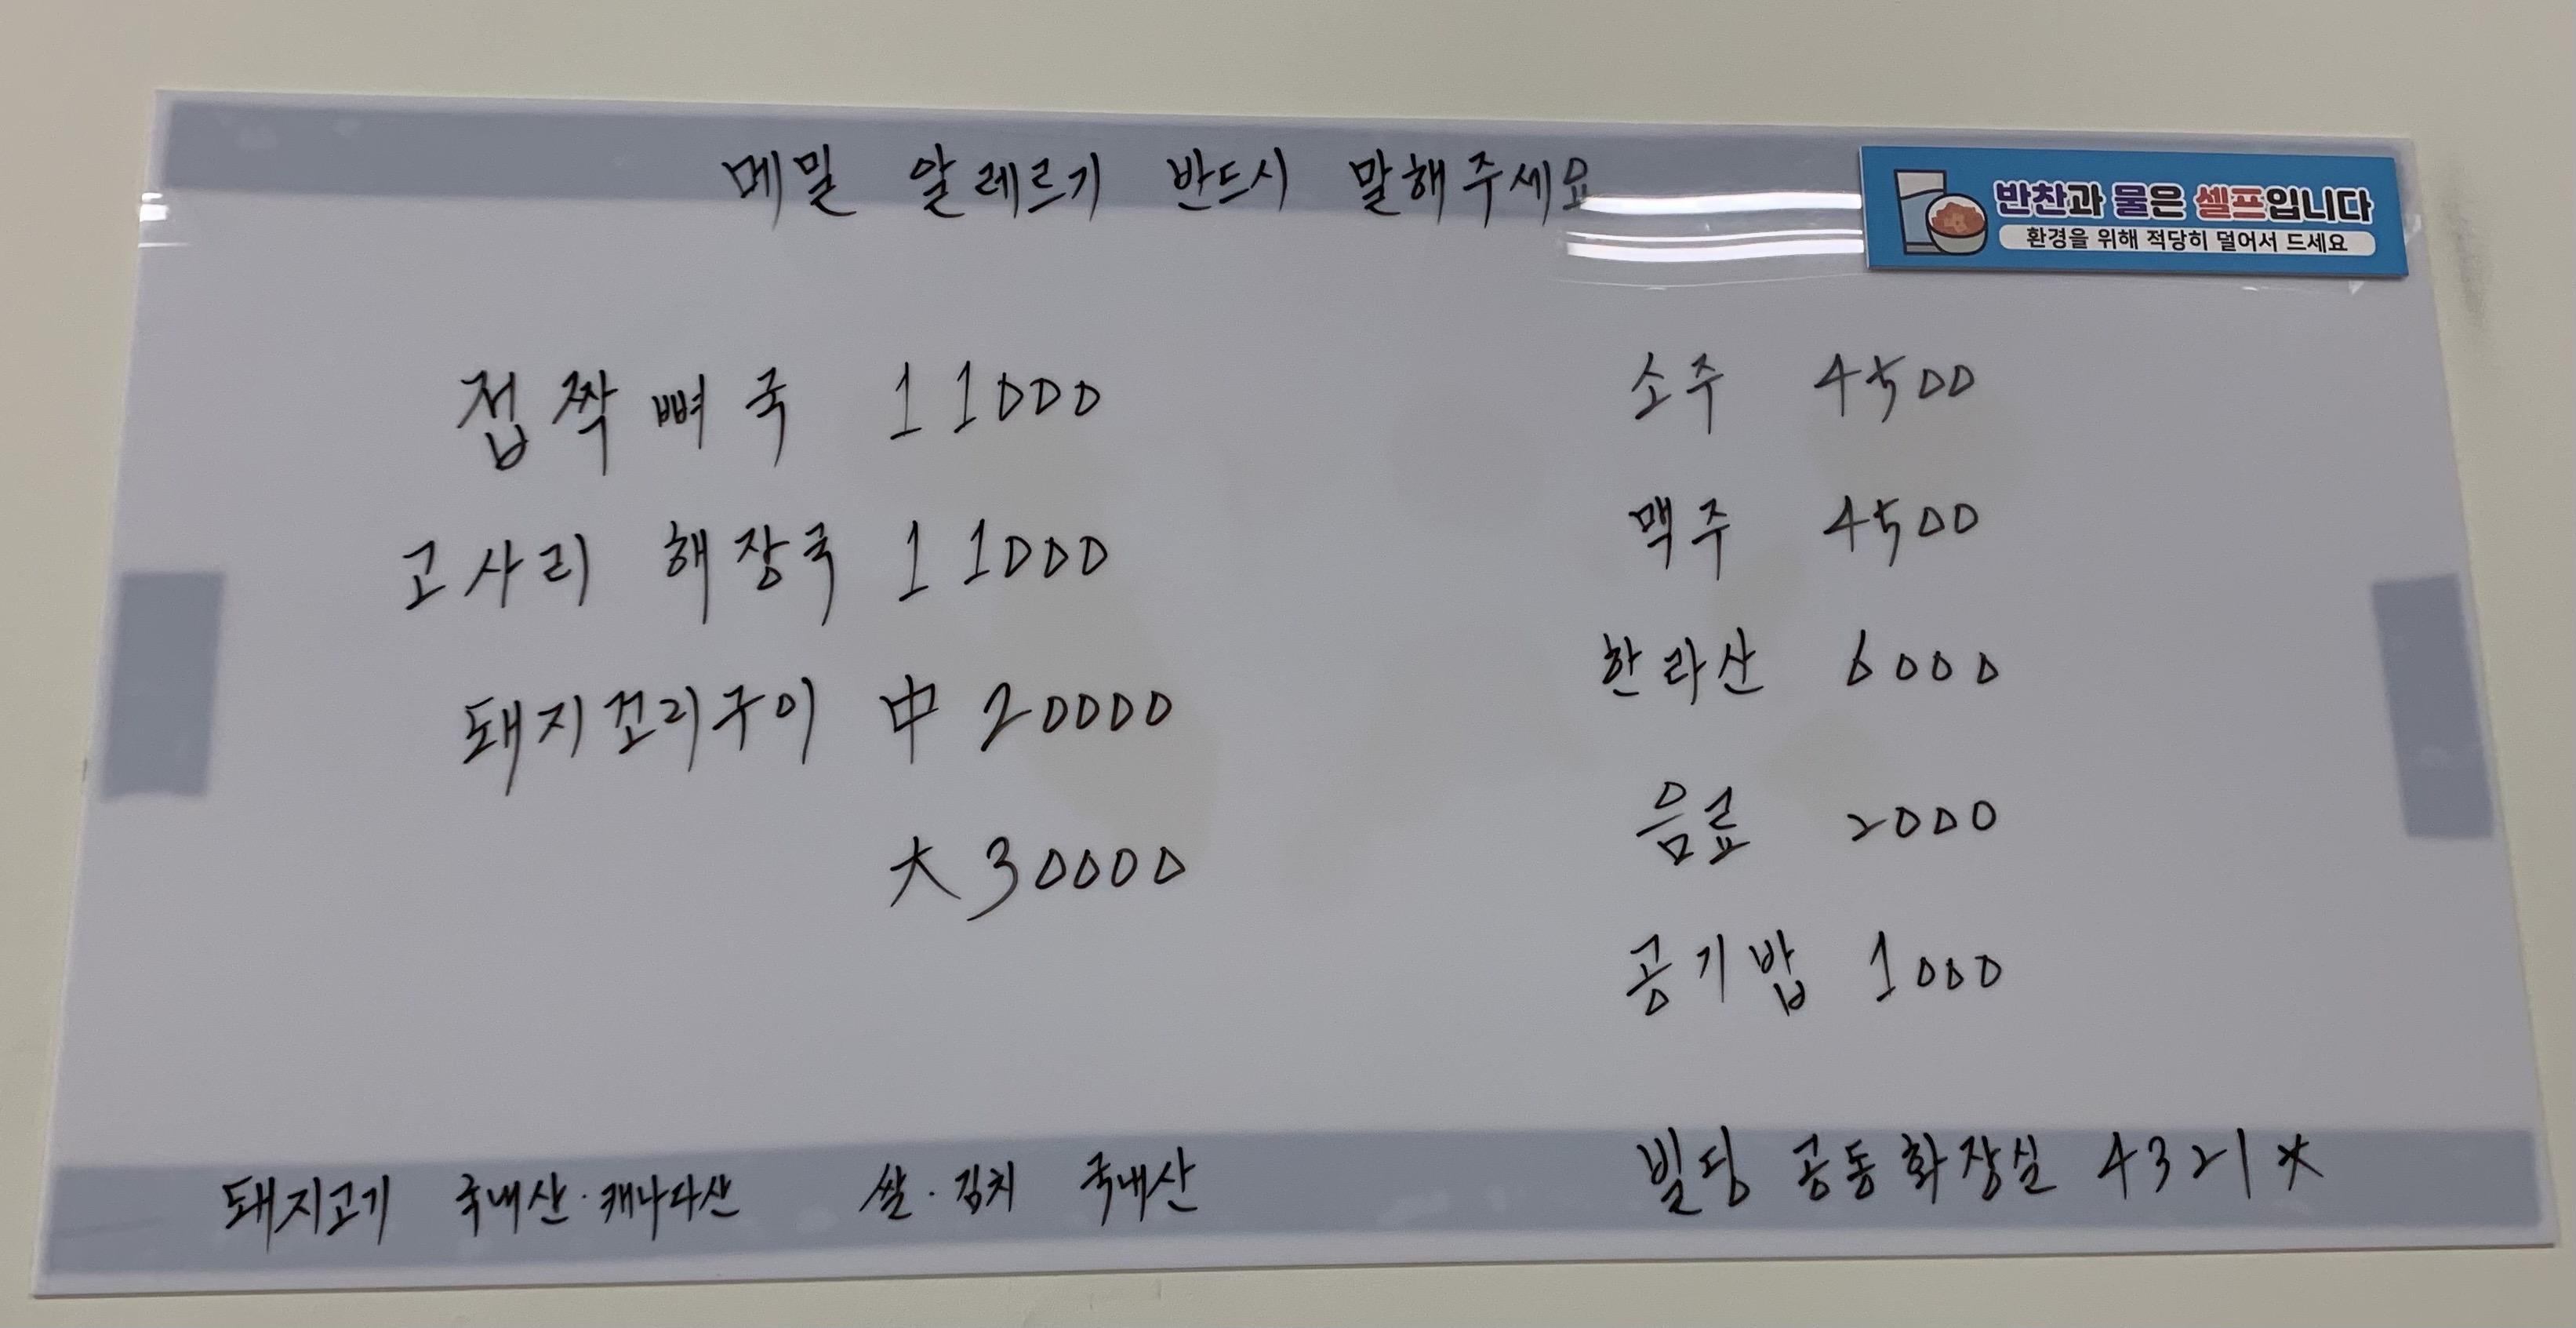 메밀 알레르기 반드시 말해주세요
반찬과 물은 셀프입니다
환경을 위해 적당히 덜어서 드세요
접짝뼈국 11000
고사리 해장국 11000
돼지꼬리구이 中 20000
大 30000
소주 4500
맥주 4500
한라산 6000
음료 2000
공기밥 1000
돼지고기 국내산·캐나다산 쌀·김치 국내산
빌딩 공동화장실 4321*